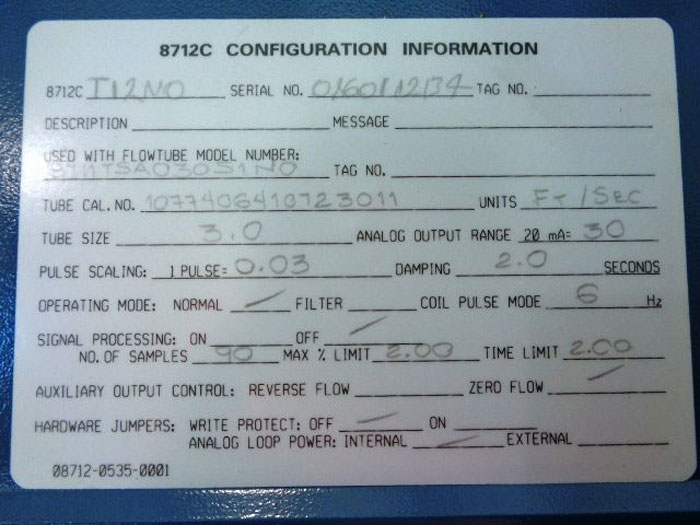 8712C CONFIGURATION INFORMATION
8712C T12N0 SERIAL NO. 0160112134 TAG NO.
DESCRIPTION MESSAGE
USED WITH FLOWTUBE MODEL NUMBER:
8711TSA030S1N0 TAG NO.
TUBE CAL. NO. 1077406410723011 UNITS FT/SEC
TUBE SIZE 3.0 ANALOG OUTPUT RANGE 20 mA= 30
PULSE SCALING: 1 PULSE= 0.03 DAMPING 2.0 SECONDS
OPERATING MODE: NORMAL FILTER COIL PULSE MODE 6 Hz
SIGNAL PROCESSING: ON OFF
NO. OF SAMPLES 90 MAX % LIMIT 2.00 TIME LIMIT 2.00
AUXILIARY OUTPUT CONTROL: REVERSE FLOW ZERO FLOW
HARDWARE JUMPERS: WRITE PROTECT: OFF ON
ANALOG LOOP POWER: INTERNAL EXTERNAL
08712-0535-0001